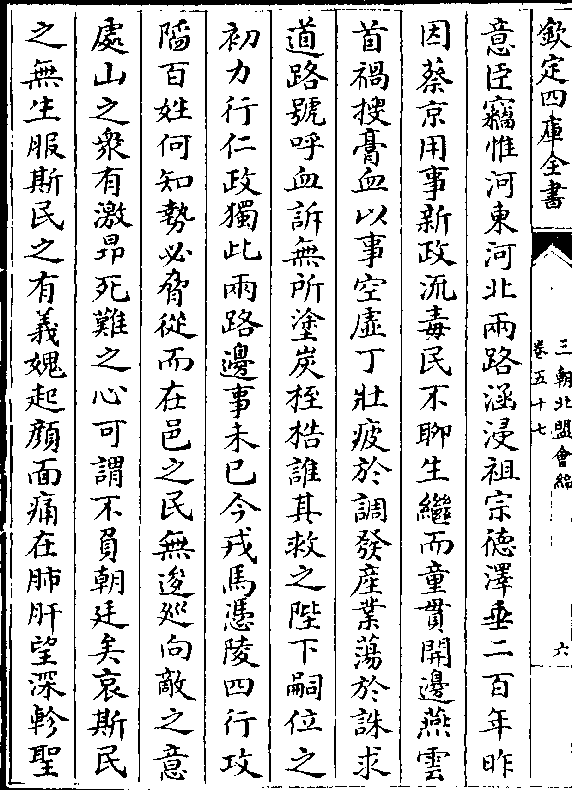 欽定四庫全書
三朝北盟會編
卷五十七
六
意臣竊惟河東河北兩路涵浸祖宗德澤垂二百年昨
因蔡京用事新政流毒民不聊生繼而童貫開邊燕雲
首禍搜膏血以事空虛丁壯疲於調發産業蕩於誅求
道路號呼血訴無所塗炭桎梏誰其救之陛下嗣位之
初力行仁政獨此兩路邊事未已今戎馬憑陵四行攻
陷百姓何知勢必脅從而在邑之民無逡巡向敵之意
處山之衆有激昂死難之心可謂不負朝廷矣哀斯民
之無生服斯民之有義媿起顔面痛在肺肝望深軫聖